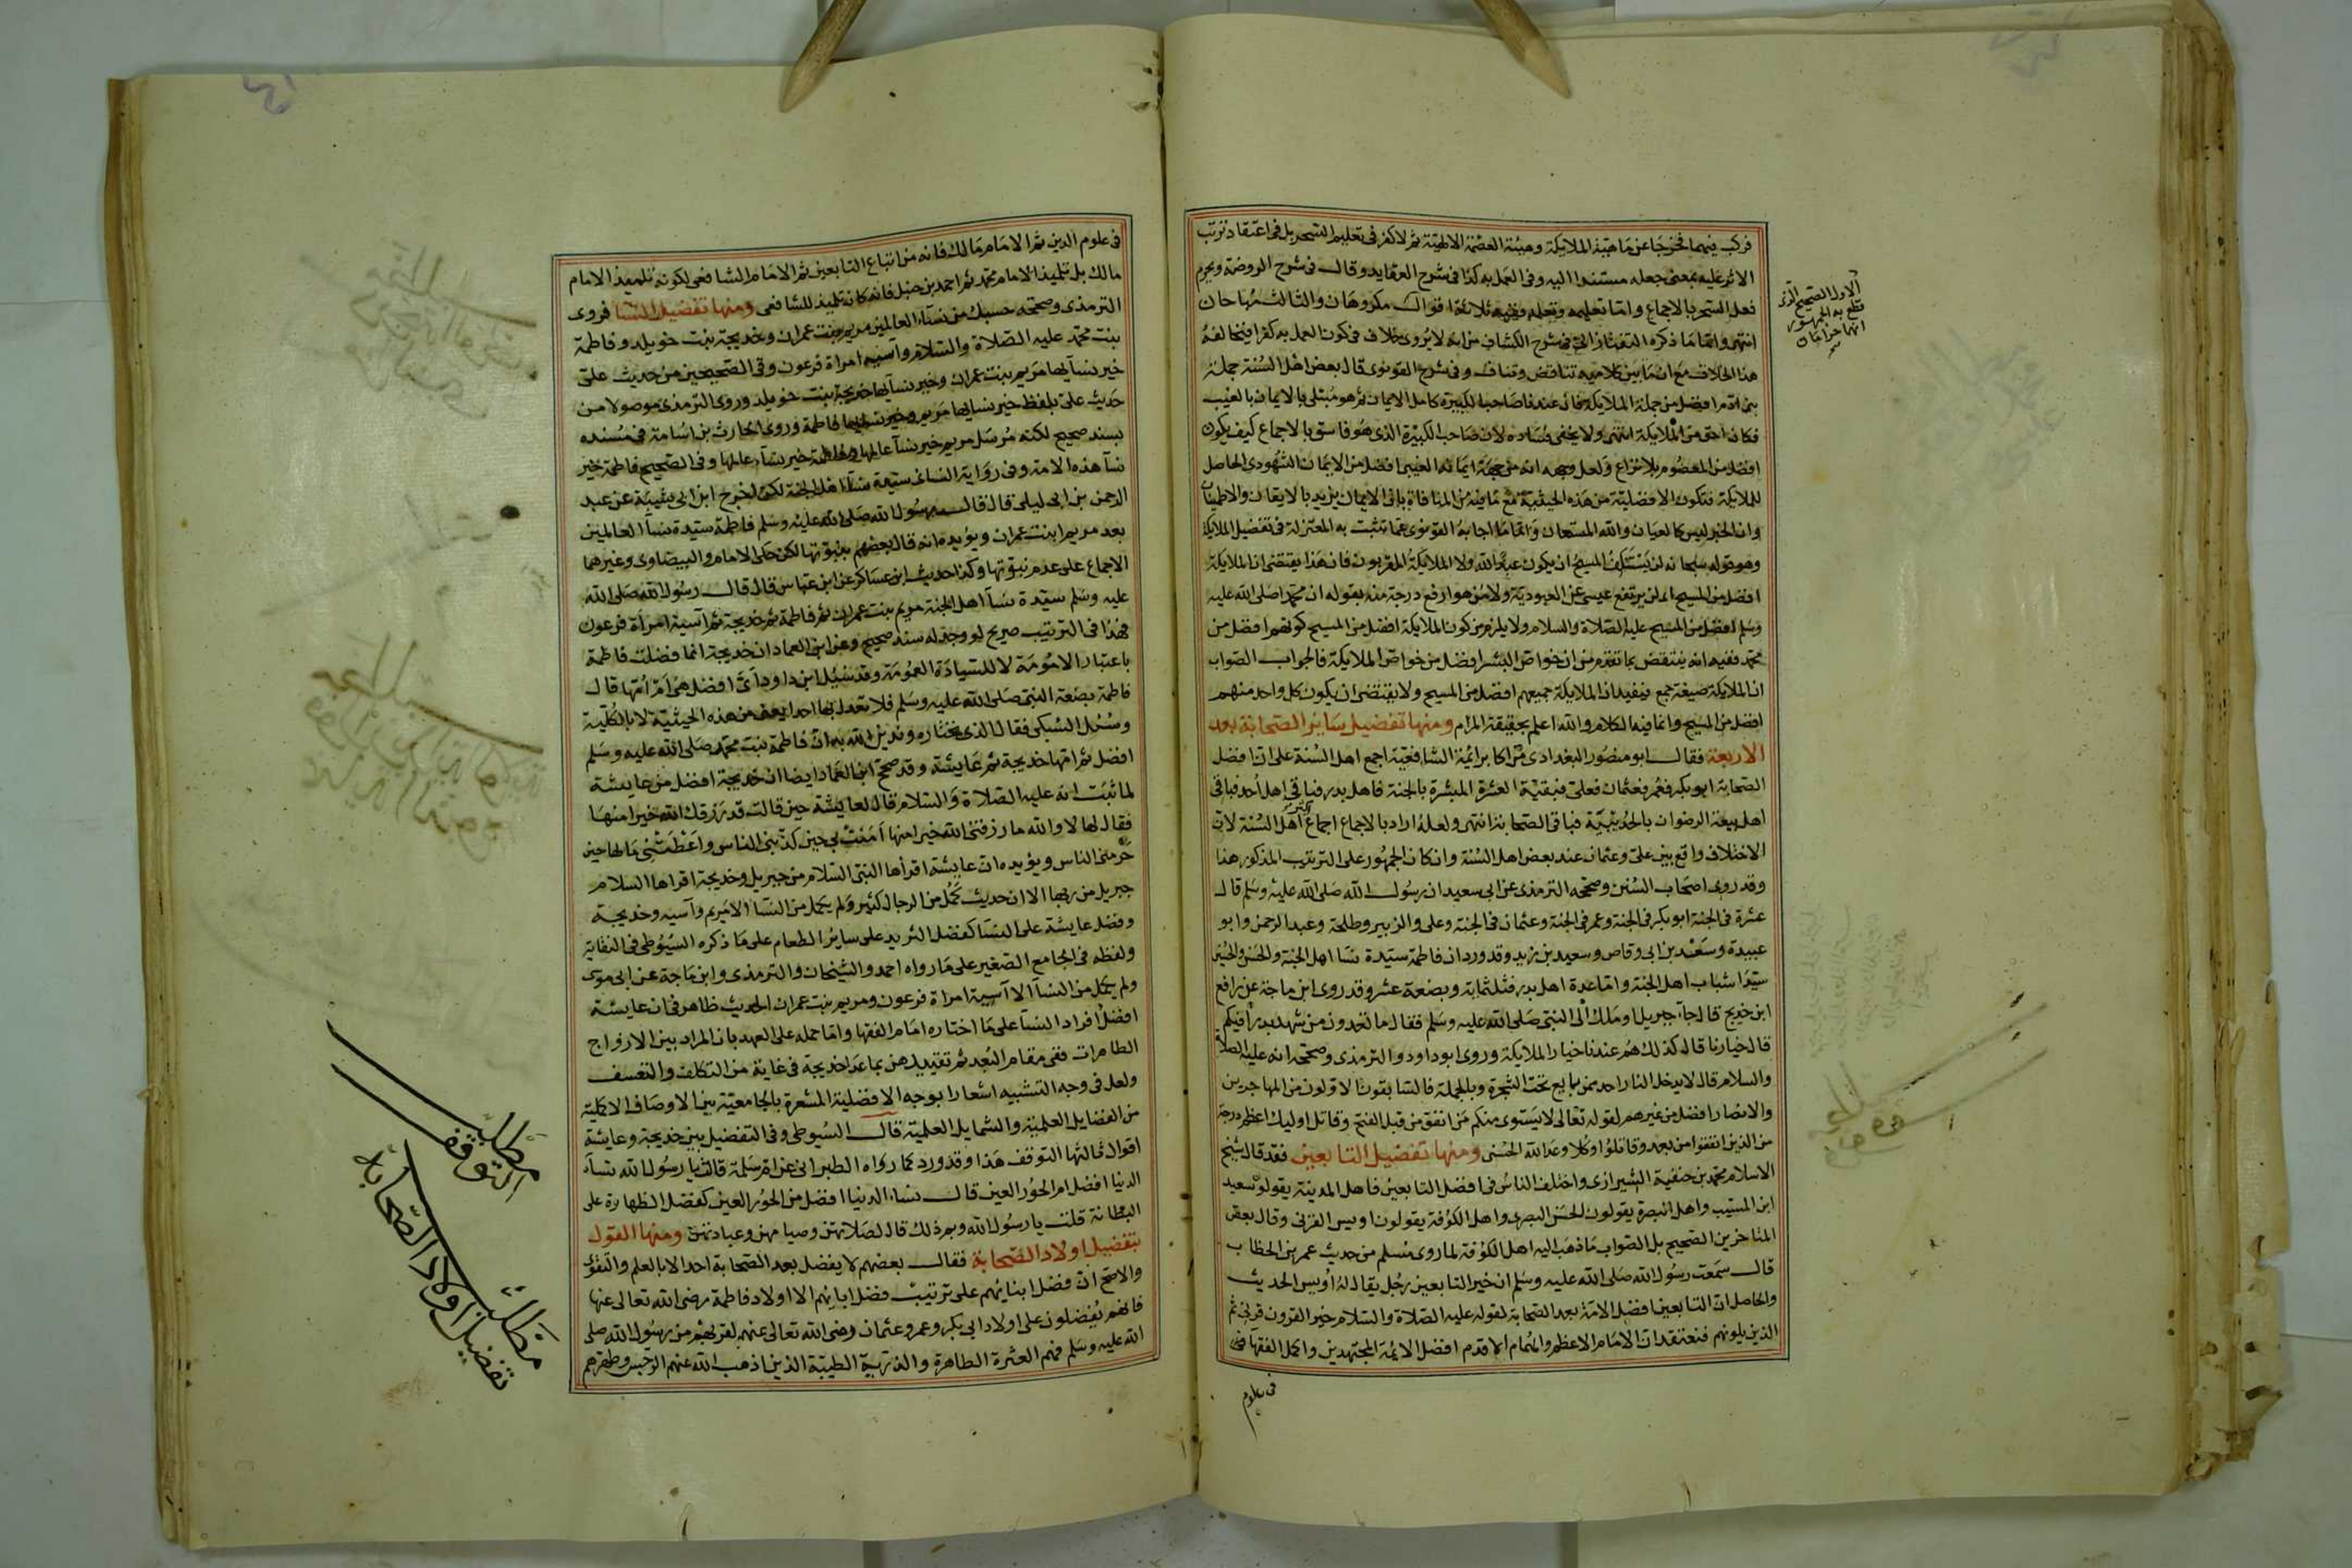 فركب فيهما فخرجا عن ماهية الملايكة وهيئة العصمة الالهية ثم لا كفر في تعليم السحر بل في اعتقاد ترتب
الاثر عليه بمعنى جعله مستندا اليه وفي العمل به كذا في شرح العقايد وقال في شرح الروضة ويحرم
فعل السحر بالاجماع واما تعليمه وتعلمه ففيه ثلاثة اقوال مكروهان والثالث مباحان
انتهى واما ما ذكره التفتازاني في شرح الكشاف من انه لا يروى خلاف في كون العمل به كفرا فيخالفه
هذا الخلاف مع ان ما بين كلاميه تناقض وتناف وفي شرح القونوي قال بعض اهل السنة جملة
بني ادم افضل من جملة الملايكة فان عندنا صاحب الكبيرة كامل الايمان ثم هو مبتلى بالايمان بالغيب
فكان احق من الملايكة انتهى ولا يخفى فساده لان صاحب الكبيرة الذي هو فاسق بالاجماع كيف يكون
افضل من المعصوم بلا نزاع ولعل وجهه انه من جهة ايمانه الغيبي افضل من الايمان الشهودي الحاصل
للملايكة فتكون الافضلية من هذه الحيثية مع ما فيه من المنافاة بان الايمان يزيد بالايقان والاطمينان
وان الخبر ليس كالعيان والله المستعان واما ما اجاب به القونوي عما تشبث به المعتزلة في تفضيل الملايكة
وهو قوله سبحانه لن يستنكف المسيح ان يكون عبدا لله ولا الملايكة المقربون فان هذا يقتضي ان الملايكة
افضل من المسيح اي لن يرتفع عيسى عن العبودية ولا من هو ارفع درجة منه بقوله ان محمدا صلى الله عليه
وسلم افضل من المسيح عليه الصلاة والسلام ولا يلزم من كون الملايكة افضل من المسيح كونهم افضل من
محمد ففيه انه ينتقض بما تقدم من ان خواص البشر افضل من خواص الملايكة فالجواب الصواب
ان الملايكة صيغة جمع فيفيد ان الملايكة جميعهم افضل من المسيح ولا يقتضي ان يكون كل واحد منهم
افضل من المسيح وانما فيه الكلام والله اعلم بحقيقة المرام ومنها تفضيل ساير الصحابة بعد
الاربعة فقال ابو منصور البغدادي من اكابر ائمة الشافعية اجمع اهل السنة على ان افضل
الصحابة ابو بكر فعمر فعثمان فعلي فبقية العشرة المبشرة بالجنة فاهل بدر فباقي اهل احد فباقي
اهل بيعة الرضوان بالحديبية فباقي الصحابة انتهى ولعله اراد بالاجماع اجماع اكثر اهل السنة لان
الاختلاف واقع بين علي وعثمان عند بعض اهل السنة وان كان الجمهور على الترتيب المذكور هذا
وقد روى اصحاب السنن وصححه الترمذي عن ابي سعيد ان رسول الله صلى الله عليه وسلم قال
عشرة في الجنة ابو بكر في الجنة وعمر في الجنة وعثمان في الجنة وعلي والزبير وطلحة وعبد الرحمن وابو
عبيدة وسعد بن ابي وقاص وسعيد بن زيد وقد ورد ان فاطمة سيدة نسا اهل الجنة والحسن والحسين
سيدا شباب اهل الجنة واما عدة اهل بدر فثلثمائة وبضعة عشر وقد روى ابن ماجة عن رافع
ابن خديج قال جاء جبريل او ملك الى النبي صلى الله عليه وسلم فقال ما تعدون من شهد بدرا فيكم
قال خيارنا قال كذلك هم عندنا خيار الملايكة وروى ابو داود والترمذي وصححه انه عليه الصلاة
والسلام قال لا يدخل النار احد ممن بايع تحت الشجرة وبالجملة فالسابقون الاولون من المهاجرين
والانصار افضل من غيرهم لقوله تعالى لا يستوي منكم من انفق من قبل الفتح وقاتل اوليك اعظم درجة
من الذين انفقوا من بعد وقاتلوا وكلا وعد الله الحسنى ومنها تفضيل التابعين فقد قال شيخ
الاسلام محمد بن خفيف الشيرازي واختلف الناس في افضل التابعين فاهل المدينة يقولون سعيد
ابن المسيب واهل البصرة يقولون الحسن البصري واهل الكوفة يقولون اويس القرني وقال بعض
المتاخرين الصحيح بل الصواب ما ذهب اليه اهل الكوفة لما روى مسلم من حديث عمر بن الخطاب
قال سمعت رسول الله صلى الله عليه وسلم ان خير التابعين رجل يقال له اويس الحديث
والحاصل ان التابعين افضل الامة بعد الصحابة لقوله عليه الصلاة والسلام خير القرون قرني ثم
الذين يلونهم فنعتقد ان الامام الاعظم والهمام الاقدم افضل الائمة المجتهدين واكمل الفقها في
في علوم
الاول الصحيح الذي
قطع به الجمهور
انهما حرامان
صح
في علوم الدين ثم الامام مالك فانه من اتباع التابعين ثم الامام الشافعي لكونه تلميذ الامام
مالك بل تلميذ الامام محمد ثم احمد بن حنبل فانه كان تلميذ للشافعي ومنها تفضيل النسا فروى
الترمذي وصححه حسبك من نساء العالمين مريم بنت عمران وخديجة بنت خويلد وفاطمة
بنت محمد عليه الصلاة والسلام وآسيه امراة فرعون وفي الصحيحين من حديث علي
خير نسآيها مريم بنت عمران وخير نسآيها خديجة بنت خويلد وروى الترمذي موصولا من
حديث علي بلفظ خير نسايها مريم وخير نسايها فاطمة وروى الحارث بن اسامة في مسنده
بسند صحيح لكنه مرسل مريم خير نسآ عالمها وفاطمة خير نسآء عالمها وفي الصحيح فاطمة خير
نسآ هذه الامة وفي رواية النسائي سيدة نسآء اهل الجنة لكن اخرج ابن ابي شيبة عن عبد
الرحمن بن ابي ليلى قال قال رسول الله صلى الله عليه وسلم فاطمة سيدة نسآ العالمين
بعد مريم ابنت عمران ويؤيده انه قال بعضهم بنبوتها لكن حكى الامام والبيضاوي وغيرهما
الاجماع على عدم نبوتها وكذا حديث ابن عساكر عن ابن عباس قال قال رسول الله صلى الله
عليه وسلم سيدة نسآ اهل الجنة مريم بنت عمران ثم فاطمة ثم خديجة ثم آسية امرأة فرعون
فهذا في الترتيب صريح لو وجد له سند صحيح وعن ابن العماد ان خديجة انما فضلت فاطمة
باعتبار الامومة لا للسيادة العمومة وقد سئل ابن داود اي افضل هي ام امها قال
فاطمة بضعة النبي صلى الله عليه وسلم فلا تعدل بها احدا يعني من هذه الحيثية لا بالكلية
وسئل السبكي فقال الذي نختاره وندين الله به ان فاطمة بنت محمد صلى الله عليه وسلم
افضل ثم امها خديجة ثم عايشة وقد صحح ابن العماد ايضا ان خديجة افضل من عايشة
لما ثبت انه عليه الصلاة والسلام قال لعايشة حين قالت قد رزقك الله خيرا منها
فقال لها لا والله ما رزقني الله خيرا منها آمنت بي حين كذبني الناس واعطتني مالها حين
حرمني الناس ويؤيده ان عايشة اقرأها النبي السلام من جبريل وخديجة اقراها السلام
جبريل من ربها الا ان حديث كمل من الرجال كثير ولم يكمل من النسآ الا مريم وآسيه وخديجة
وفضل عايشة على النسا كفضل الثريد على ساير الطعام على ما ذكره السيوطي في النقاية
ولفظه في الجامع الصغير على ما رواه احمد والشيخان والترمذي وابن ماجة عن ابي موسى
ولم يكمل من النسآ الا آسية امراة فرعون ومريم بنت عمران الحديث ظاهر في ان عايشة
افضل افراد النسآ على ما اختاره امام الفقها واما حمله على العهد بان المراد بين الازواج
الطاهرات ففي مقام البعد ثم تقييدهن بما عدا خديجة في غاية من التكلف والتعسف
ولعل في وجه التشبيه اشعارا بوجه الافضلية المشعرة بالجامعية بين الاوصاف الاكملية
من الفضايل العلمية والشمايل العملية قال السيوطي وفي التفضيل بين خديجة وعايشة
اقوال ثالثها التوقف هذا وقد ورد كما رواه الطبراني عن ام سلمة قالت يا رسول الله نسآء
الدنيا افضل ام الحور العين قال نساء الدنيا افضل من الحور العين كفضل الظهارة على
البطانة قلت يا رسول الله وبم ذلك قال لصلاتهن وصيامهن وعبادتهن ومنها القول
بتفضيل اولاد الصحابة فقال بعضهم لا يفضل بعد الصحابة احد الا بالعلم والتقوى
والاصح ان فضل ابنائهم على ترتيب فضل ابائهم الا اولاد فاطمة رضي الله تعالى عنها
فانهم يفضلون على اولاد ابي بكر وعمر وعثمان رضي الله تعالى عنهم لقربهم من رسول الله صلى
الله عليه وسلم فهم العترة الطاهرة والذرية الطيبة الذين اذهب الله عنهم الرجس وطهرهم
مطلب
التوقف
مطلب
تفضيل اولاد الصحابة